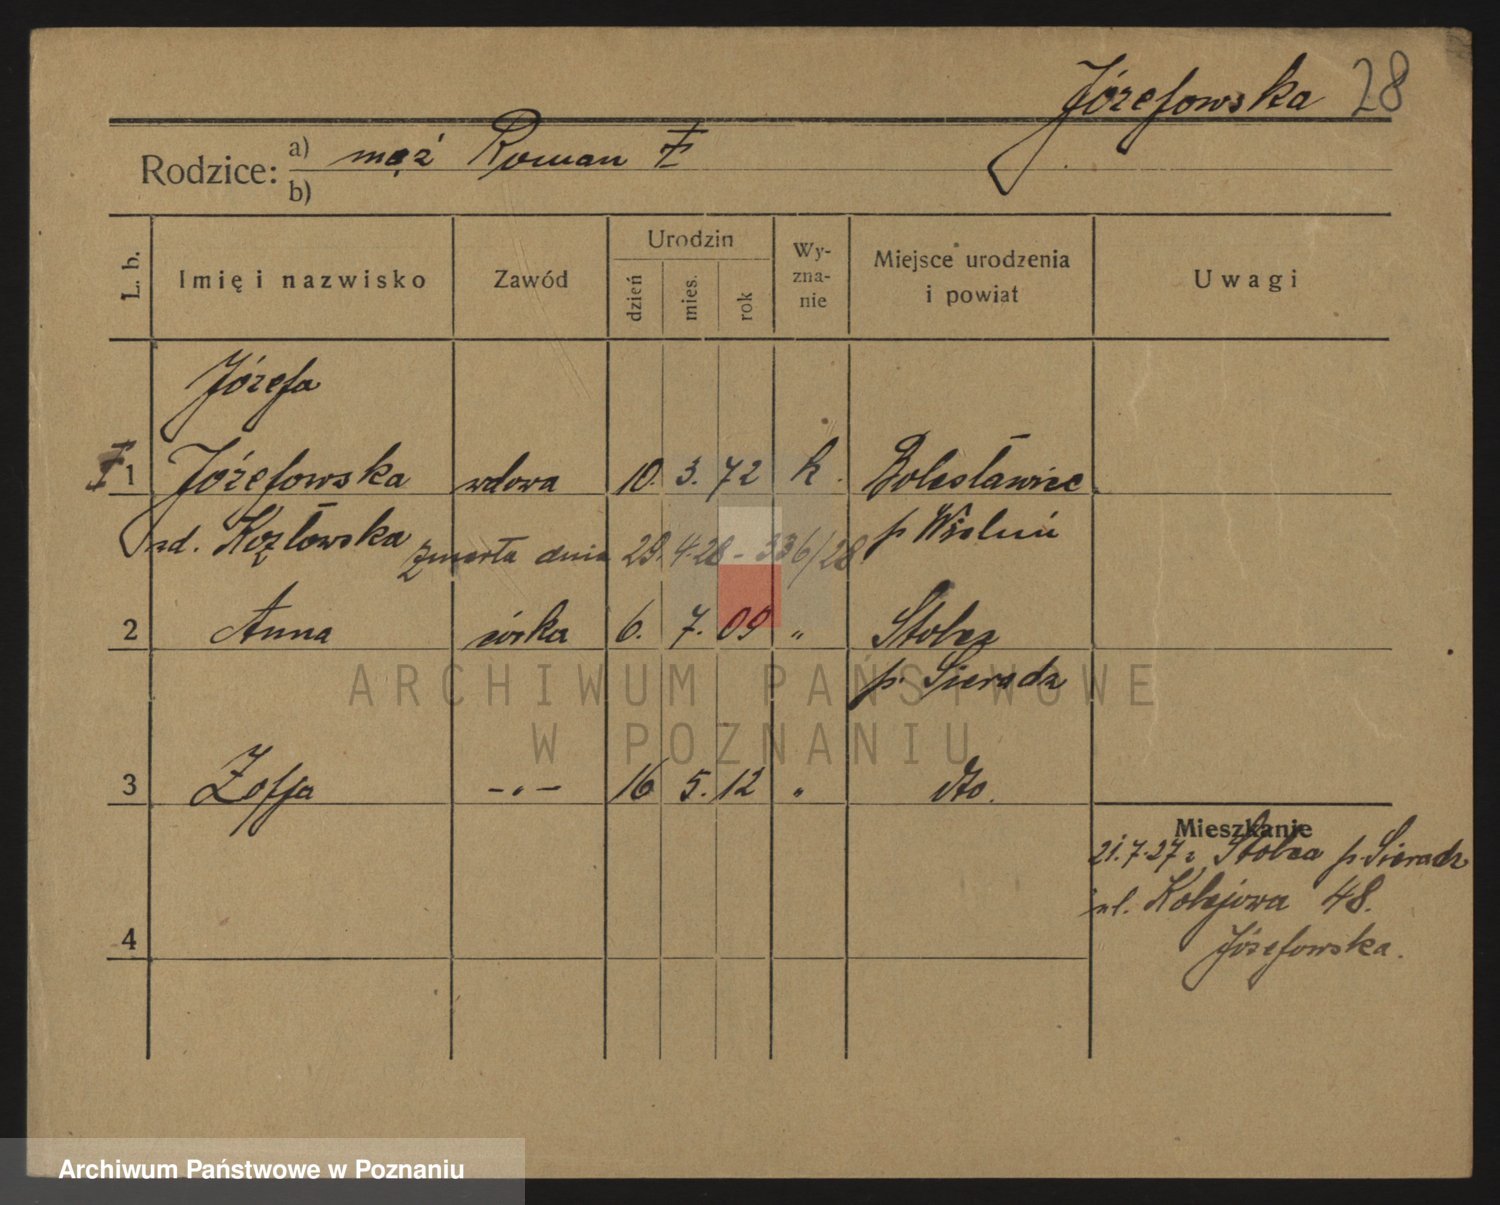 Józefowska 28
Rodzice: a) mąż Roman ‡
b)
L. b. Imię i nazwisko Zawód Urodzin dzień mies. rok Wyznanie Miejsce urodzenia i powiat Uwagi
Józefa
‡ 1 Józefowska wdowa 10. 3. 72 k. Bolesławiec
zd. Kozłowska p. Wieluń
zmarła dnia 29. 4. 28 - 336/28
2 Anna córka 6. 7. 09 " Stolec
p. Sieradz
3 Zofja - " - 16 5. 12 " dto.
4
Mieszkanie
21.7.27 z p. Sieradz
ul. Kolejowa 48.
Józefowska.
ARCHIWUM PAŃSTWOWE
W POZNANIU
Archiwum Państwowe w Poznaniu